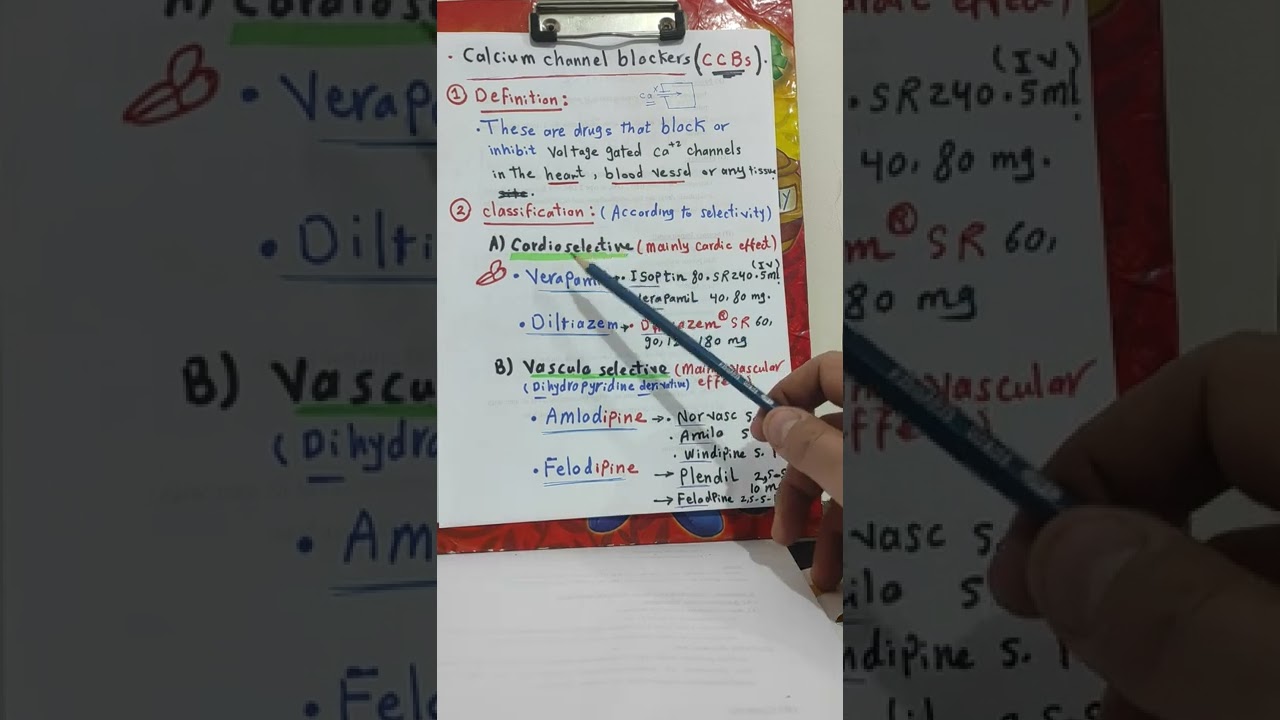 · Calcium channel blockers (CCBs).
① Definition:
ca
· These are drugs that block or
inhibit voltage gated ca+2 channels
in the heart, blood vessel or any tissue
② classification: (According to selectivity)
A) Cardioselective (mainly cardic effect)
(IV)
· Verapamil → · ISoptin 80 · SR240 · 5ml
verapamil 40, 80 mg.
· Diltiazem → · SR 60,
90, 180 mg
B) Vasculo selective (mainly vascular
(Dihydropyridine derivative) effect)
· Amlodipine → · Norvasc 5
· Amilo 5
· Windipine 5.
· Felodipine → Plendil 2,5-5
10 m
→ Felodpine 2,5-5-